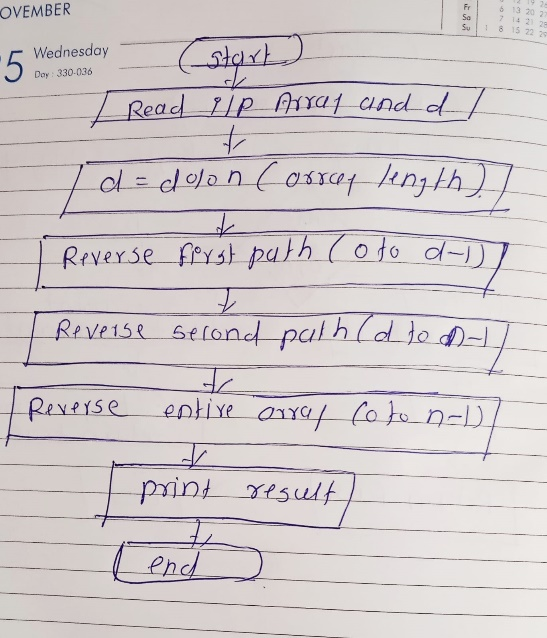 OVEMBER
5 Wednesday
Day: 330-036
Fr 6 13 20
Sa 7 14 21
Su 1 8 15 22
start
Read I/P Array and d
d = d%n (array length)
Reverse first path (0 to d-1)
Reverse second path (d to n-1
Reverse entire array (0 to n-1)
print result
end